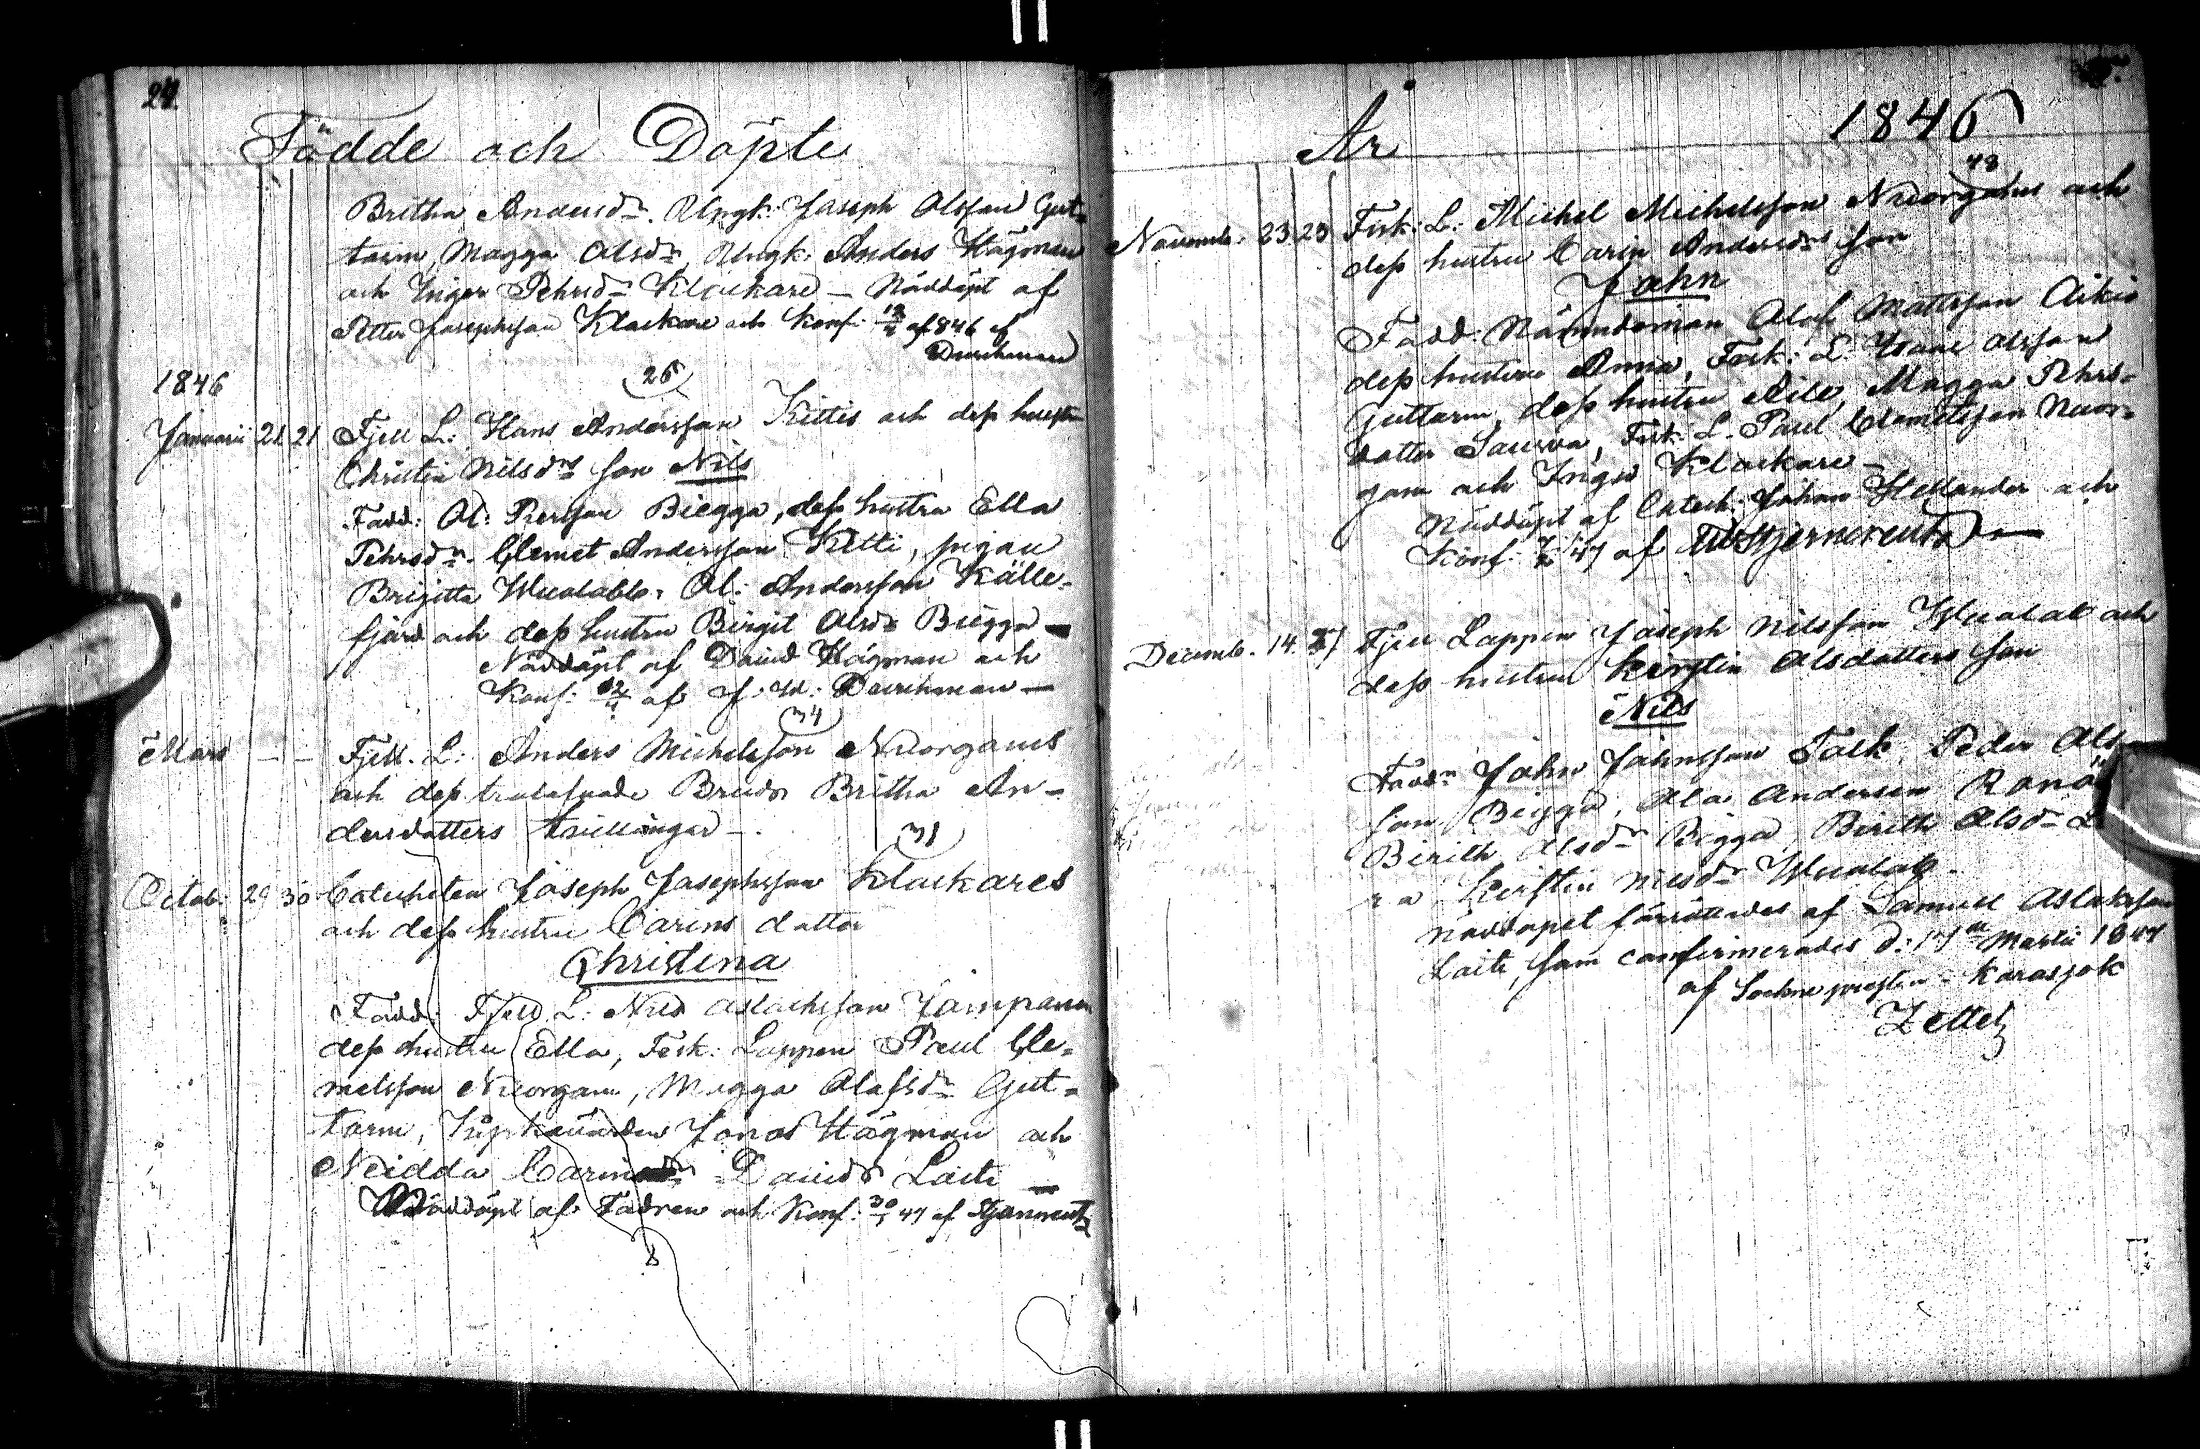 24
Födde och Döpte
Britha Andersdr. Ungk. Joseph Olsson Gut-
torm, Magga Olsdr, Ungk. Anders Högman
och Inger Pehrsdr Klockare — Nöddöpt af
Petter Josephsson Klockare och Konf: af 846 af
Durchman
1846
26
Januarii 21 21 Fjell L: Hans Andersson Kittis och dess hustru
Christin Nilsdrs son Nils
Fadd: Ol: Persson Biegga, dess hustru Ella
Pehrsdr. Clemet Andersson Kitti, pigan
Brigitta Wualabb. Ol: Andersson Källe-
fjärd och dess hustru Birgit Olsdr Biegga —
Nöddöpt af David Högman och
Konf: af J. W. Durchman —
34
Mars — — Fjell. L: Anders Michelsson Nuorgams
och dess trolofvade Brud Britha An-
dersdatters tvillingar —.
31
Octob: 29 30 Catecheten Joseph Josephsson Klockares
och dess hustru Carins dotter
Christina
Fadd: Fjell L: Nils Aslachsson Jomppanen
dess hustru Ella, Fisk: Lappen Paul Cle-
metsson Nuorgam, Magga Olofsdr Gut-
torm, Jonas Högman och
Neidda Carin Davids Laiti —
Nöddöpt af Fadren och Konf: 30/1 47 af Stjerncreutz
År 1846
48
Novemb: 23 23 Fisk: L: Michel Michelsson Nuorgams och
dess hustru Carin Andersdrs son
John
Fadd: Nämndeman Olof Mattsson Aikio
dess hustru Anna, Fisk: L: Isaac Olsson
Guttorm, dess hustru Aile, Magga Pehrs-
dotter Saurva, Fisk: L. Paul Clemetsson Nuor-
gam och Inger Klockare —
Nöddöpt af Catech: Johan Hellander och
Konf: 47 af Stjerncreutz —
Decemb. 14. 17 Fjell Lappen Joseph Nilsson Wualab och
dess hustru Kirstin Olsdatters son
Nils
Faddr John Johnsson Talk, Peder Ols-
son Biegga, Ola Andersen
Birith Olsdr Bigga, Birith Olsdr
Kirstin Nilsdr Wualab.
Nöddopet förrättades af Samuel Aslaksson
Laiti, som confirmerades d: 17de Martii 1847
af Sockne presten i Karasjok
Zetlitz